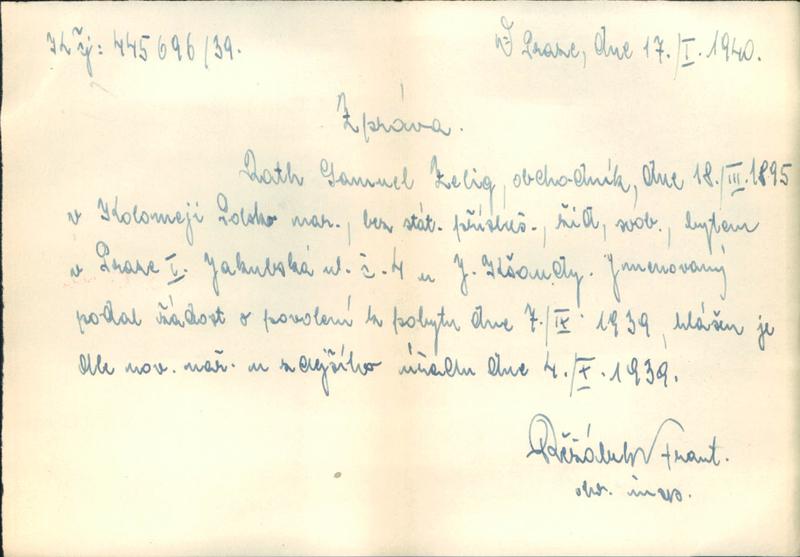 čj: 445696/39.
V Praze, dne 17./I. 1940.
Zpráva.
Rath Samuel Zelig, obchodník, dne 18./III. 1895
v Kolomeji Polsko nar., bez stát. přísluš., žid, svob., bytem
v Praze I. Jakubská ul. č. 4 u J. Kšandy. Jmenovaný
podal žádost o povolení k pobytu dne 7./IX. 1939, hlášen je
dle nov. nař. u zdejšího úřadu dne 4./X. 1939.
Frant.
insp.